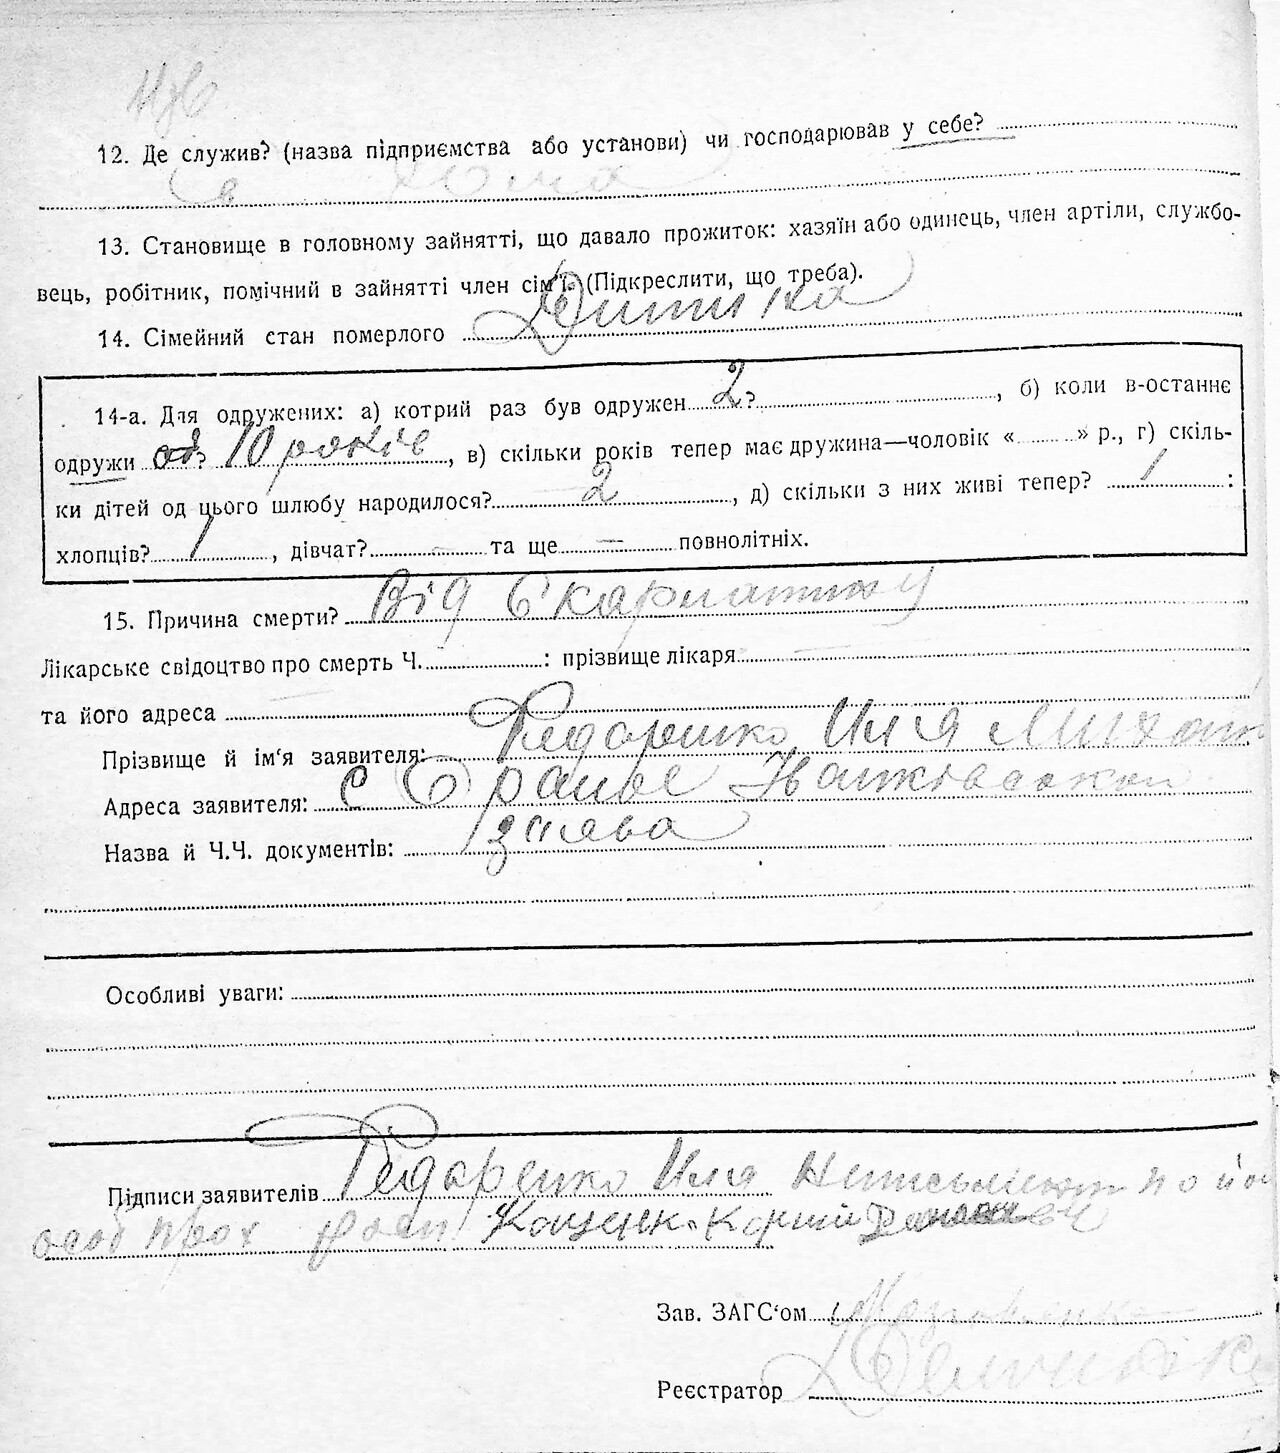 12. Де служив? (назва підприємства або установи) чи господарював у себе?
в дома
13. Становище в головному зайнятті, що давало прожиток: хазяїн або одинець, член артіли, службо-
вець, робітник, помічний в зайнятті член сім'ї. (Підкреслити, що треба).
14. Сімейний стан померлого Дитина
14-а. Для одружених: а) котрий раз був одружен 2 ?, б) коли в-останнє
одружи 10 років, в) скільки років тепер має дружина—чоловік « » р., г) скіль-
ки дітей од цього шлюбу народилося? 2, д) скільки з них живі тепер? 1 :
хлопців? 1, дівчат? — та ще — повнолітніх.
15. Причина смерти? Від Скарлатини
Лікарське свідоцтво про смерть Ч. : прізвище лікаря —
та його адреса
Прізвище й ім'я заявителя: Федоренко Илія Михаил
Адреса заявителя: с
Назва й Ч.Ч. документів: заява
Особливі уваги:
Підписи заявителів Федоренко Илія
Зав. ЗАГС'ом
Реєстратор